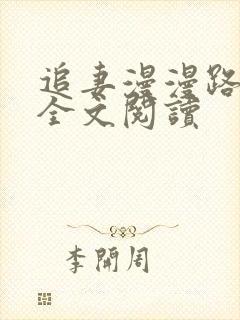 追妻漫漫路
全文閱讀
李開周